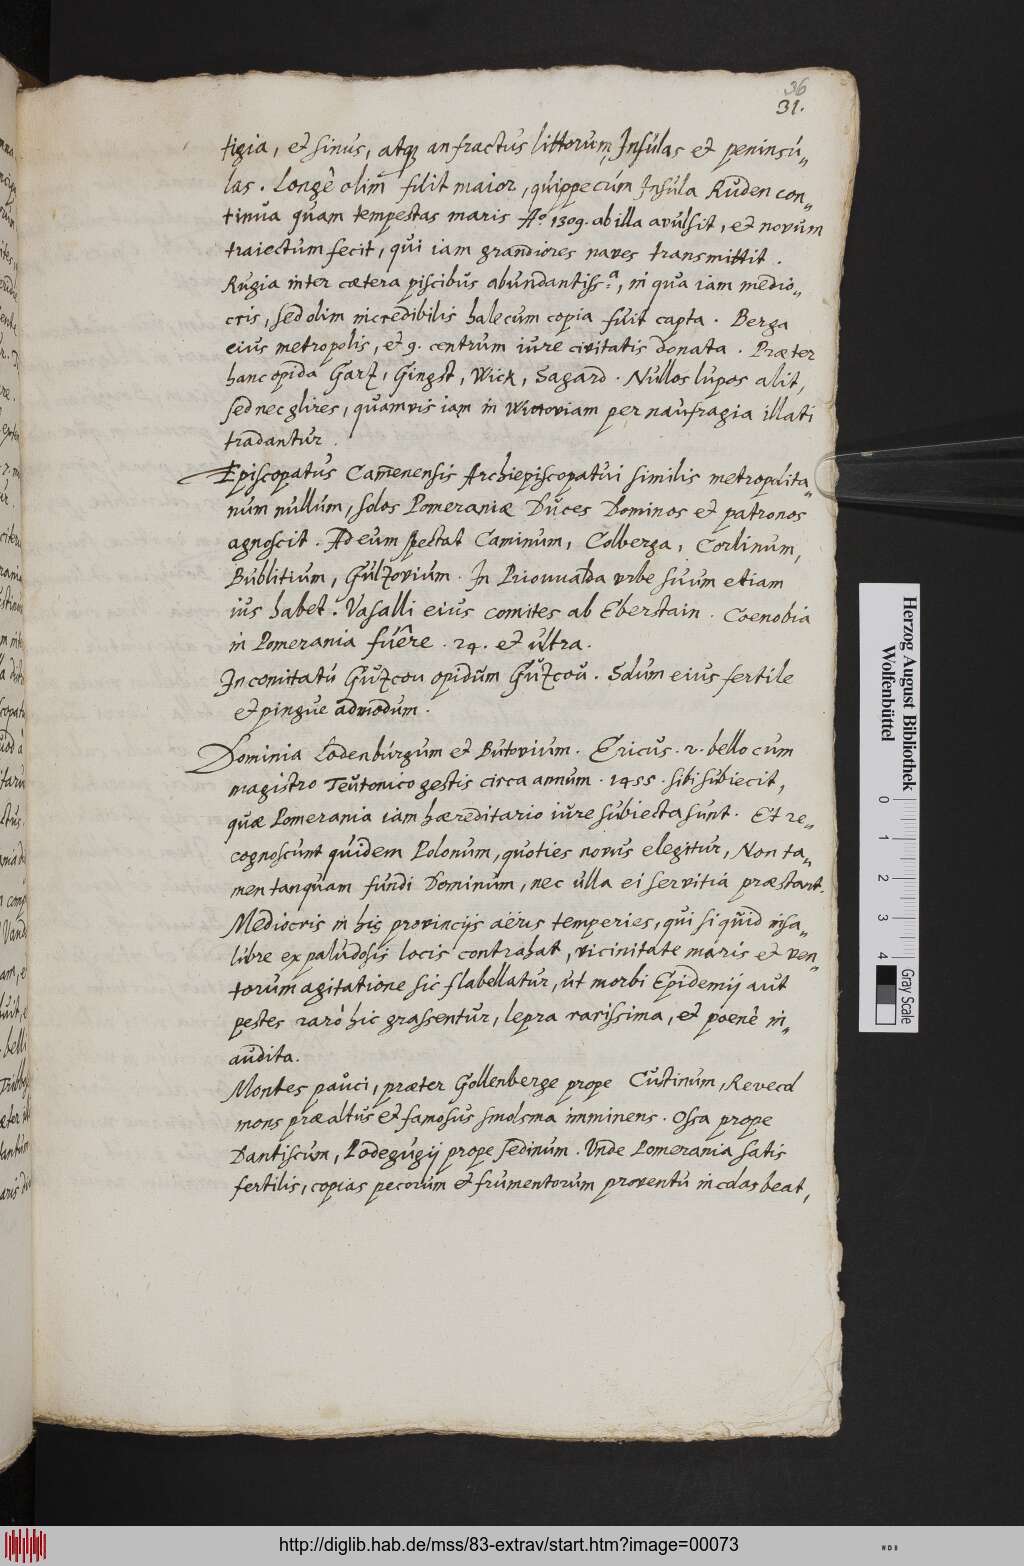 36
31.
tigia, et sinus, atq, anfractus littorum, Insulas et peninsu„
las. Longè olim fuit maior, quippe cúm Insula Ruden con„
tinua quam tempestas maris Aº. 1309. ab illa avulsit, et novum
traiectum fecit, qui iam grandiores naves transmittit.
Rugia inter cætera piscibus abundantiss.ª, in qua iam medio„
cris, sed olim incredibilis halecum copia fuit capta. Berga
eius metropolis, et 9. centrum iure civitatis donata. Præter
hanc opida Gartz, Gingst, Wick, Sagard. Nullos lupos alit,
sed nec glires, quamvis iam in Wittoviam per naufragia illati
tradantur.
Episcopatus Camenensis Archiepiscopatui similis metropolita„
num nullum, solos Pomeraniæ Duces Dominos et patronos
agnoscit. Ad eum spectat Caminum, Colberga, Corlinum,
Bublitium, Gultzovium. In urbe suum etiam
ius habet. Vasalli eius comites ab Eberstain. Coenobia
in Pomerania fuêre. 24. et ultra.
In comitatú Gutzcou opidum Gutzcou. Solum eius fertile
et pingue admodum.
Dominia Lŏdenburgum et Butovium. Ericus. 2. bello cum
magistro Teutonico gestis circa annum. 1455. sibi subiecit,
quæ Pomerania iam hæreditario iure subiecta sunt. Et re„
cognoscunt quidem Polonum, quoties novus elegitur, Non ta„
men tanquam fundi Dominum, nec ulla ei servitia præstant.
Mediocris in his provincijs aëris temperies, qui si quid insa„
lubre ex paludosis locis contrahat, vicinitate maris et ven„
torum agitatione sic flabellatur, ut morbi Epidemij aut
pestes raró hic grassentur, lepra rarissima, et poenè in„
audita.
Montes pauci, præter Gollenberge prope Custinum, Revecol
mons præaltus et famosus smolsma imminens. Ossa prope
Dantiscum, Podegugij prope Sedinum. Unde Pomerania satis
fertilis, copias pecorum et frumentorum proventu incolas beat,
Herzog August Bibliothek
Wolfenbüttel
0 1 2 3 4
Gray Scale
http://diglib.hab.de/mss/83-extrav/start.htm?image=00073
WDB